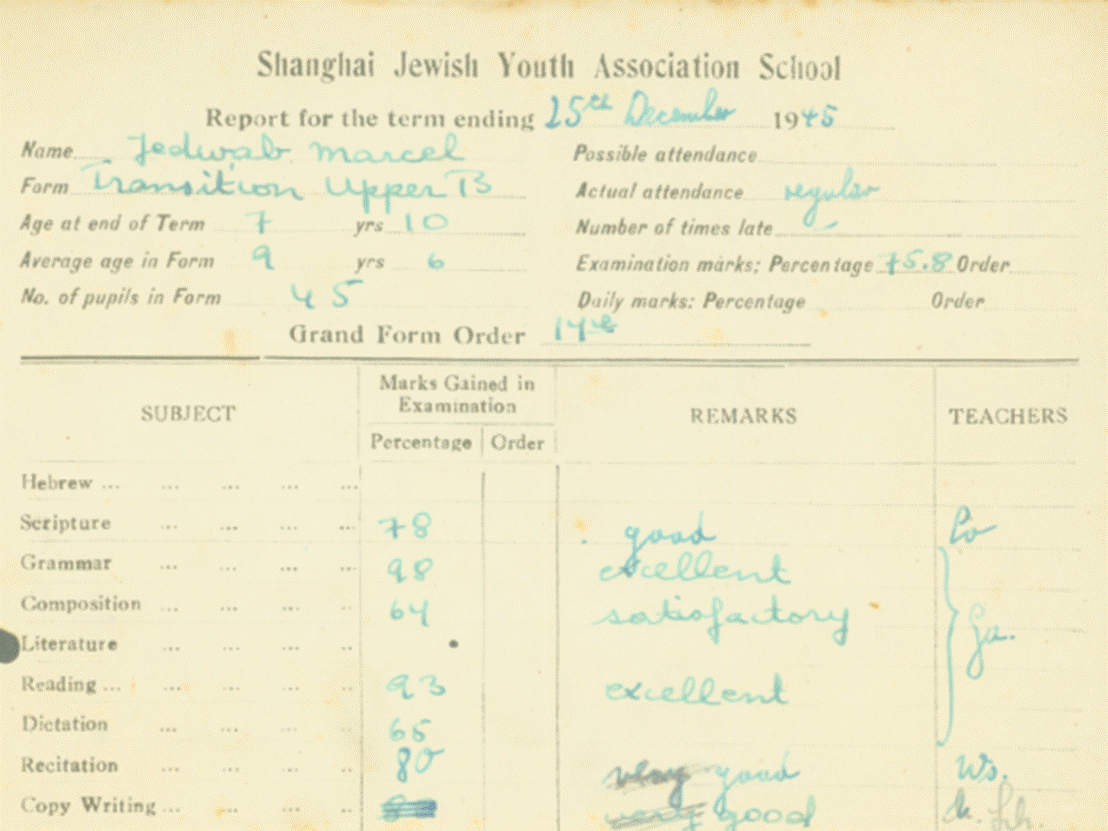 Shanghai Jewish Youth Association School
Report for the term ending 25th December 1945
Name Jedwab Marcel
Possible attendance
Form Transition Upper B
Actual attendance regular
Age at end of Term 7 yrs 10
Number of times late
Average age in Form 9 yrs 6
Examination marks: Percentage 75.8 Order
No. of pupils in Form 45
Daily marks: Percentage Order
Grand Form Order 14th
SUBJECT Marks Gained in Examination REMARKS TEACHERS
Percentage Order
Hebrew ... ... ... ... ...
Scripture ... ... ... ... 78 good Co
Grammar ... ... ... ... 98 excellent
Composition ... ... ... .. 64 satisfactory Ja.
Literature ... ... ... ..
Reading ... ... ... ... .. 93 excellent
Dictation ... ... ... .. 65
Recitation ... ... ... .. 80 very good Ws.
Copy Writing ... ... ... ... .. very good